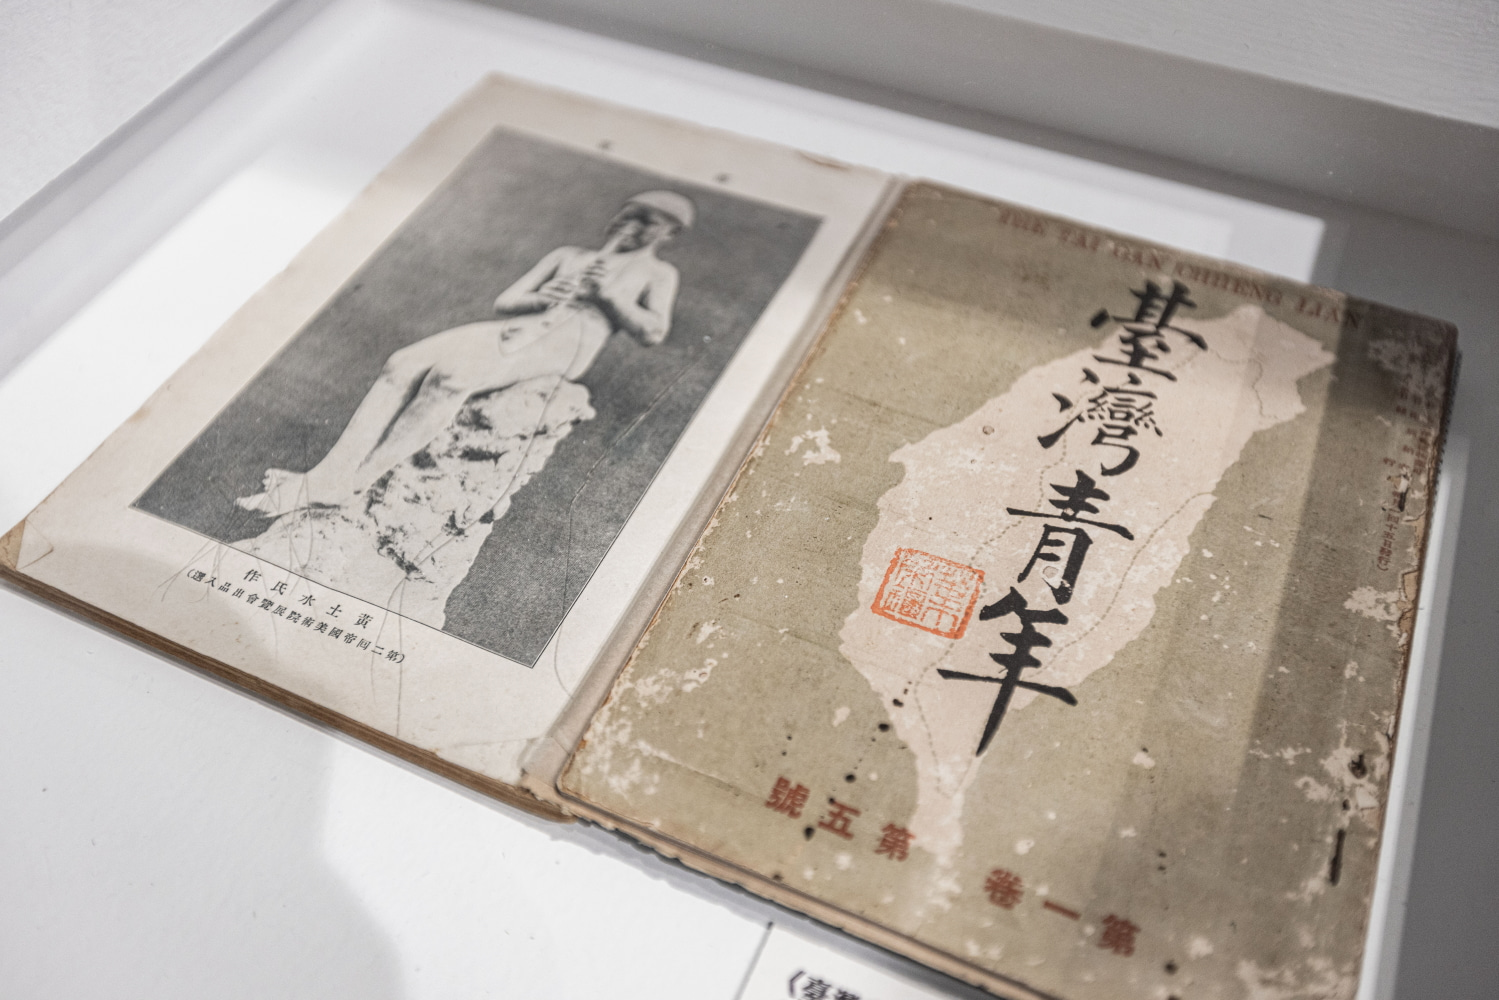 黃土水氏作
(第二回帝國美術院展覽會出品入選)
THE TAI OAN CHHENG LIAN
臺灣青年
第一卷 第五號
《臺灣